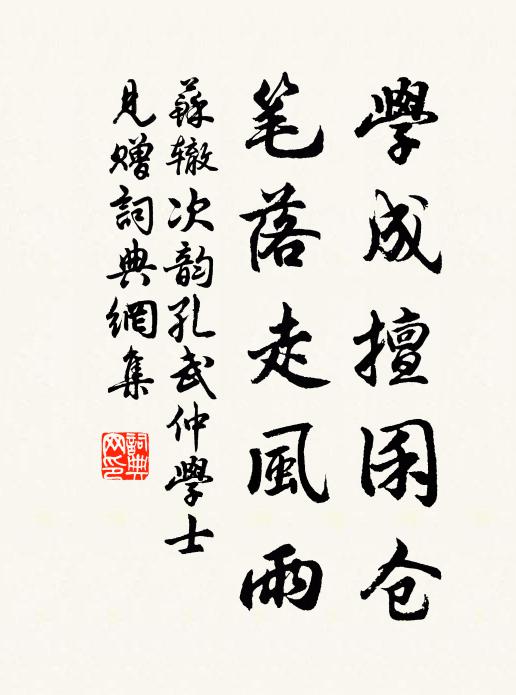 學成擅囷仓
笔落走風雨
蘇辙次韵孔武仲學士
見赠詞典網集
詞典网印